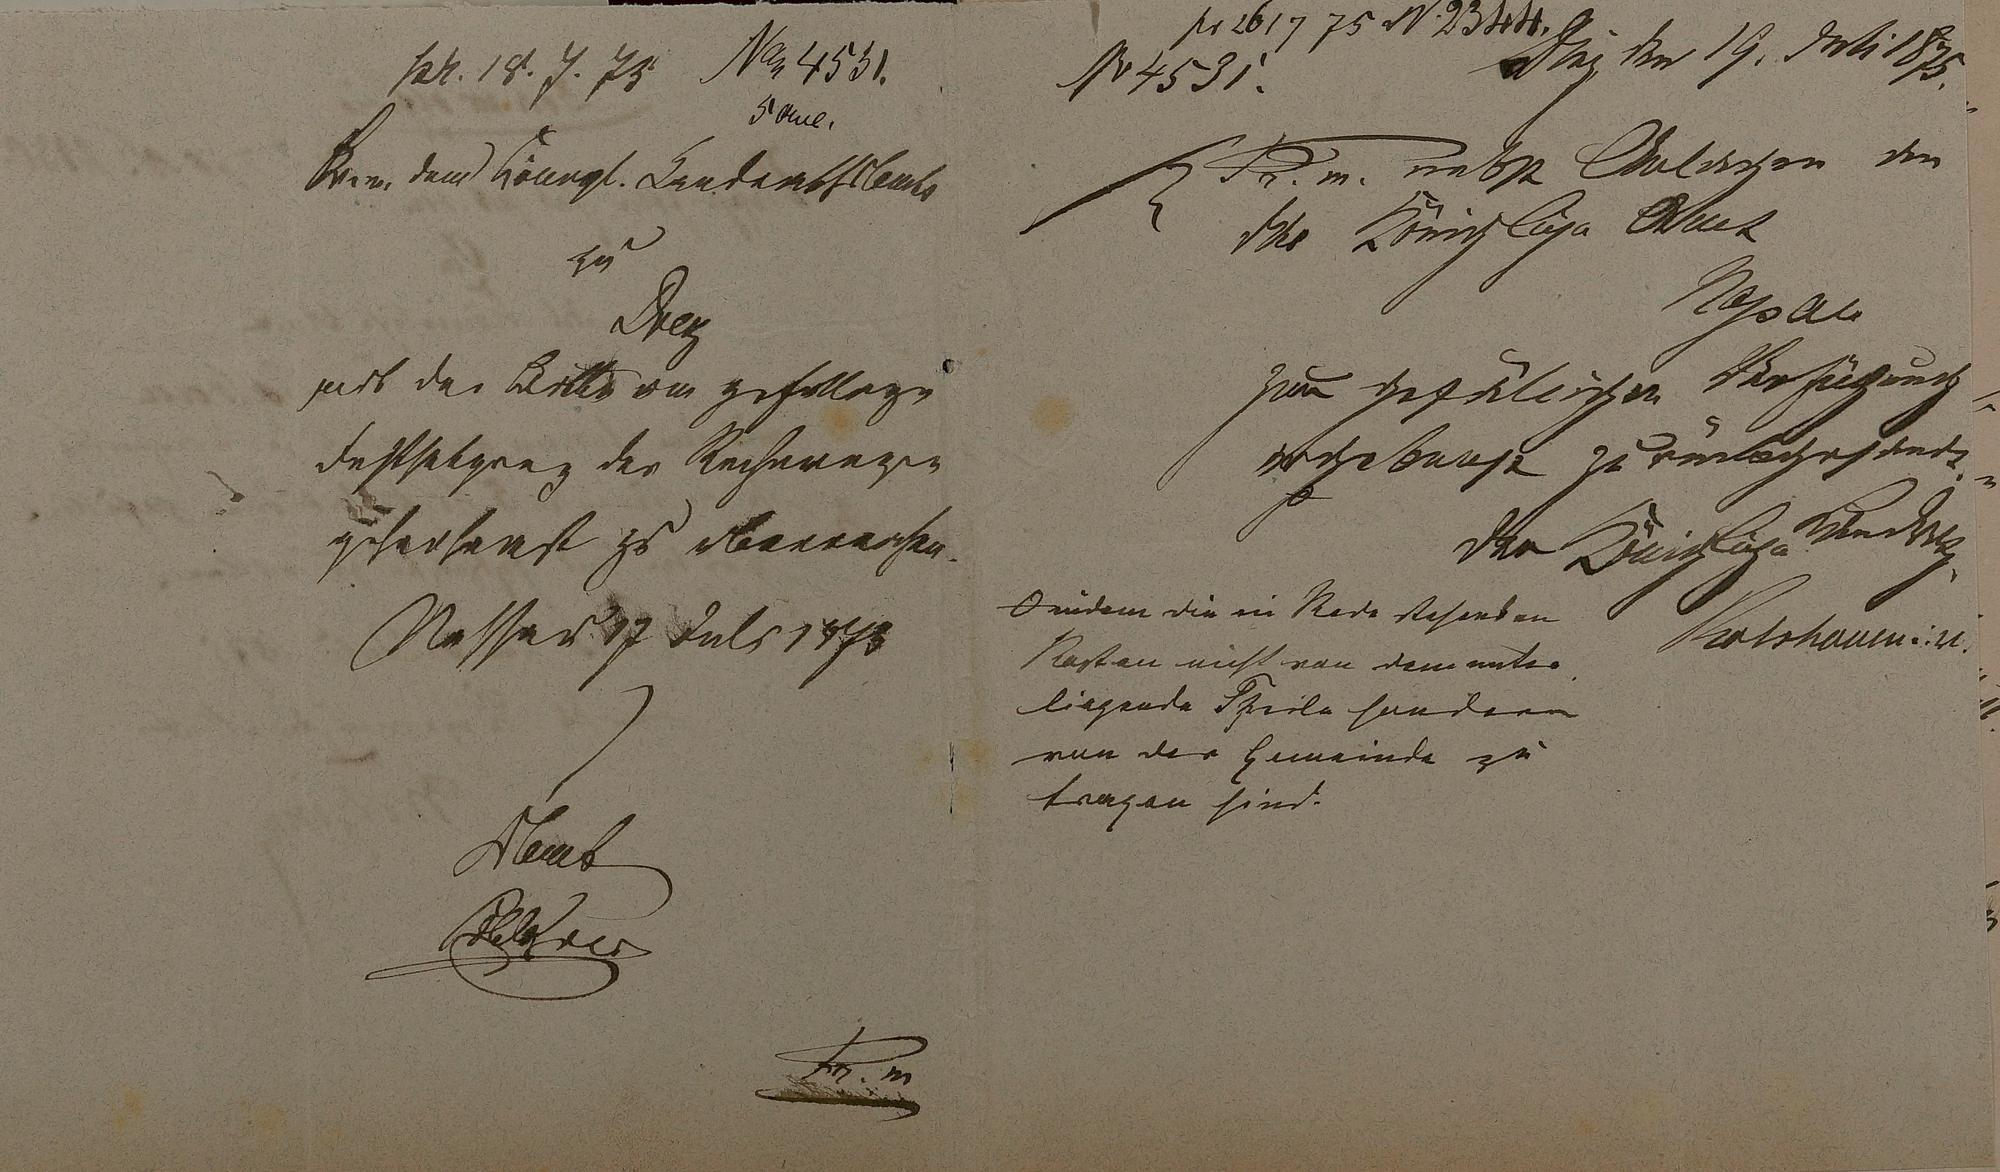 pr. 18. 7. 75 No 4531.
5 Anl.
dem Königl. Landrathsamte
zu
Diez
mit der Bitte um gefällige
Festsetzung der Rechnungen
gehorsamst zu überreichen.
Nassau 17 Juli 1875
Amt
Fr. m
pr 26/7 75 N. 2344.
No 4531.
Diez den 19. Juli 1875.
Fr. m. nebst Anlagen an
das Königliche Amt
Nassau
zur gefälligen Verfügung
ergebenst zurückgesandt,
Der Königliche Landrath
indem die in Rede stehenden
Kosten nicht von dem unter
liegende Theile sondern
von der Gemeinde zu
tragen sind.